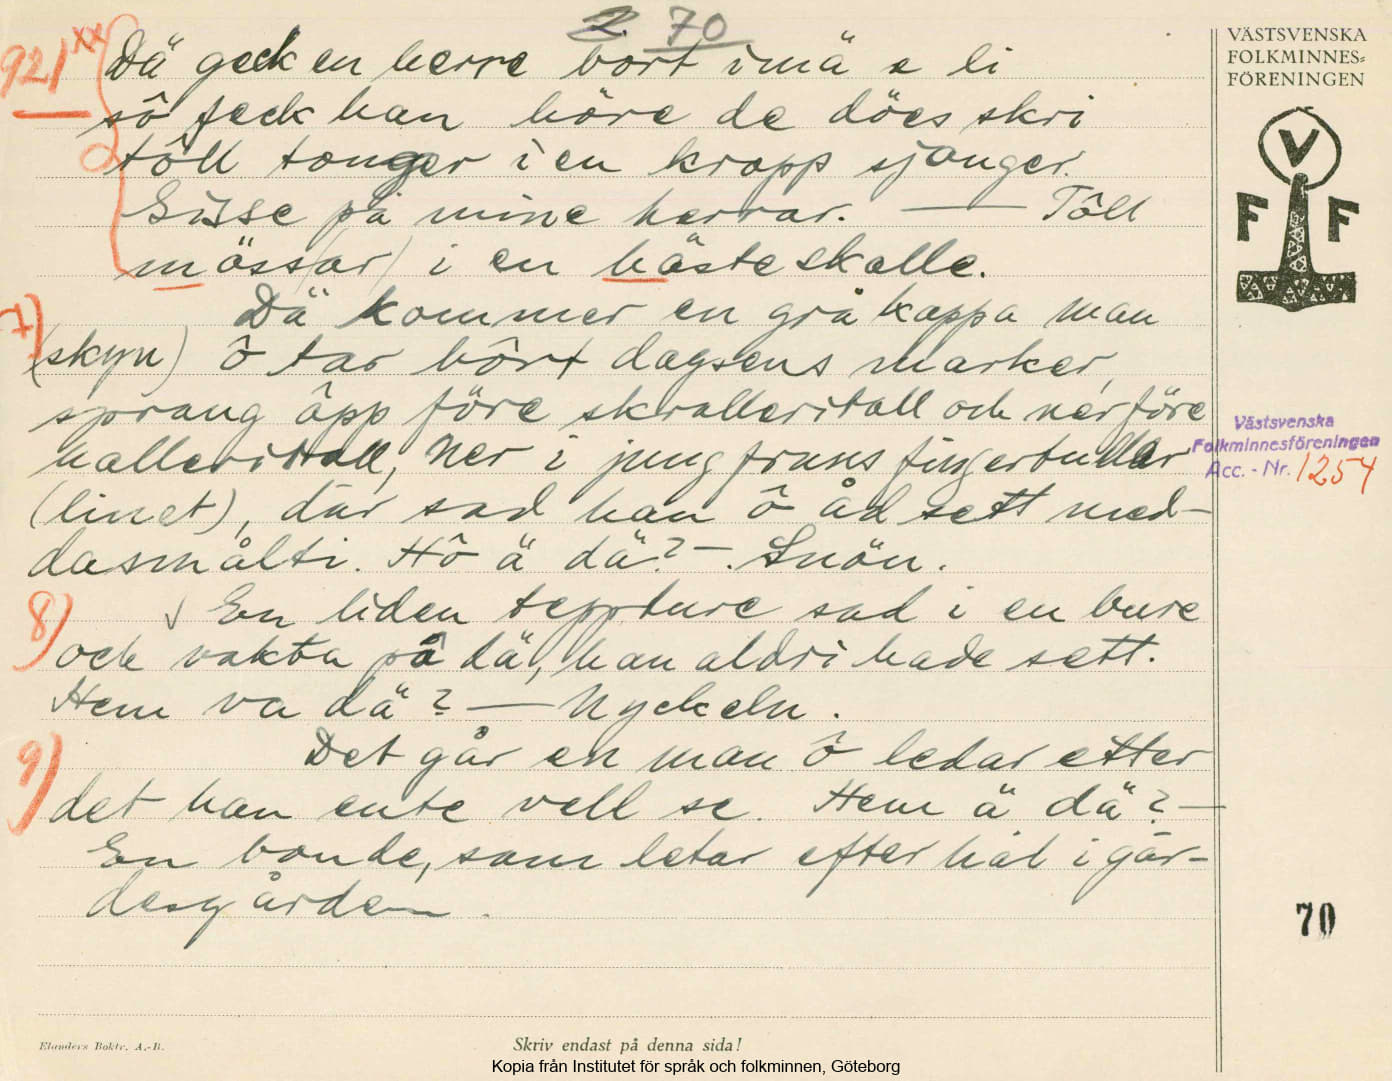 2. 70
VÄSTSVENSKA
FOLKMINNES-
FÖRENINGEN
921 xx Dä geck en herre bort imä e li
sô feck han höre de döes skri
tôll tonger i en kropp sjonger.
Gisse på mine herrar. — Tôll
möss(ar) i en hästeskalle.
7) Dä kommer en grå kappa man
(skyn) ô tar bôrt dagsens marker,
sprang ôpp före skralleritall och ner före
halleritall, ner i jungfruns fingerbullar
(linet), där sad han ô åd sett med-
dasmålti. Hô ä dä? - . Snön.
8) En liden teppture sad i en bure
och vakta på dä, han aldri hade sett.
Hem va dä? — Nyckeln.
9) Det går en man ô ledar etter
det han ente vell se. Hem ä dä? —
En bonde, som letar efter hål i gär-
desgården.
V
F F
Västsvenska
Folkminnesföreningen
Acc. - Nr. 1254
70
Elanders Boktr. A.-B.
Skriv endast på denna sida!
Kopia från Institutet för språk och folkminnen, Göteborg